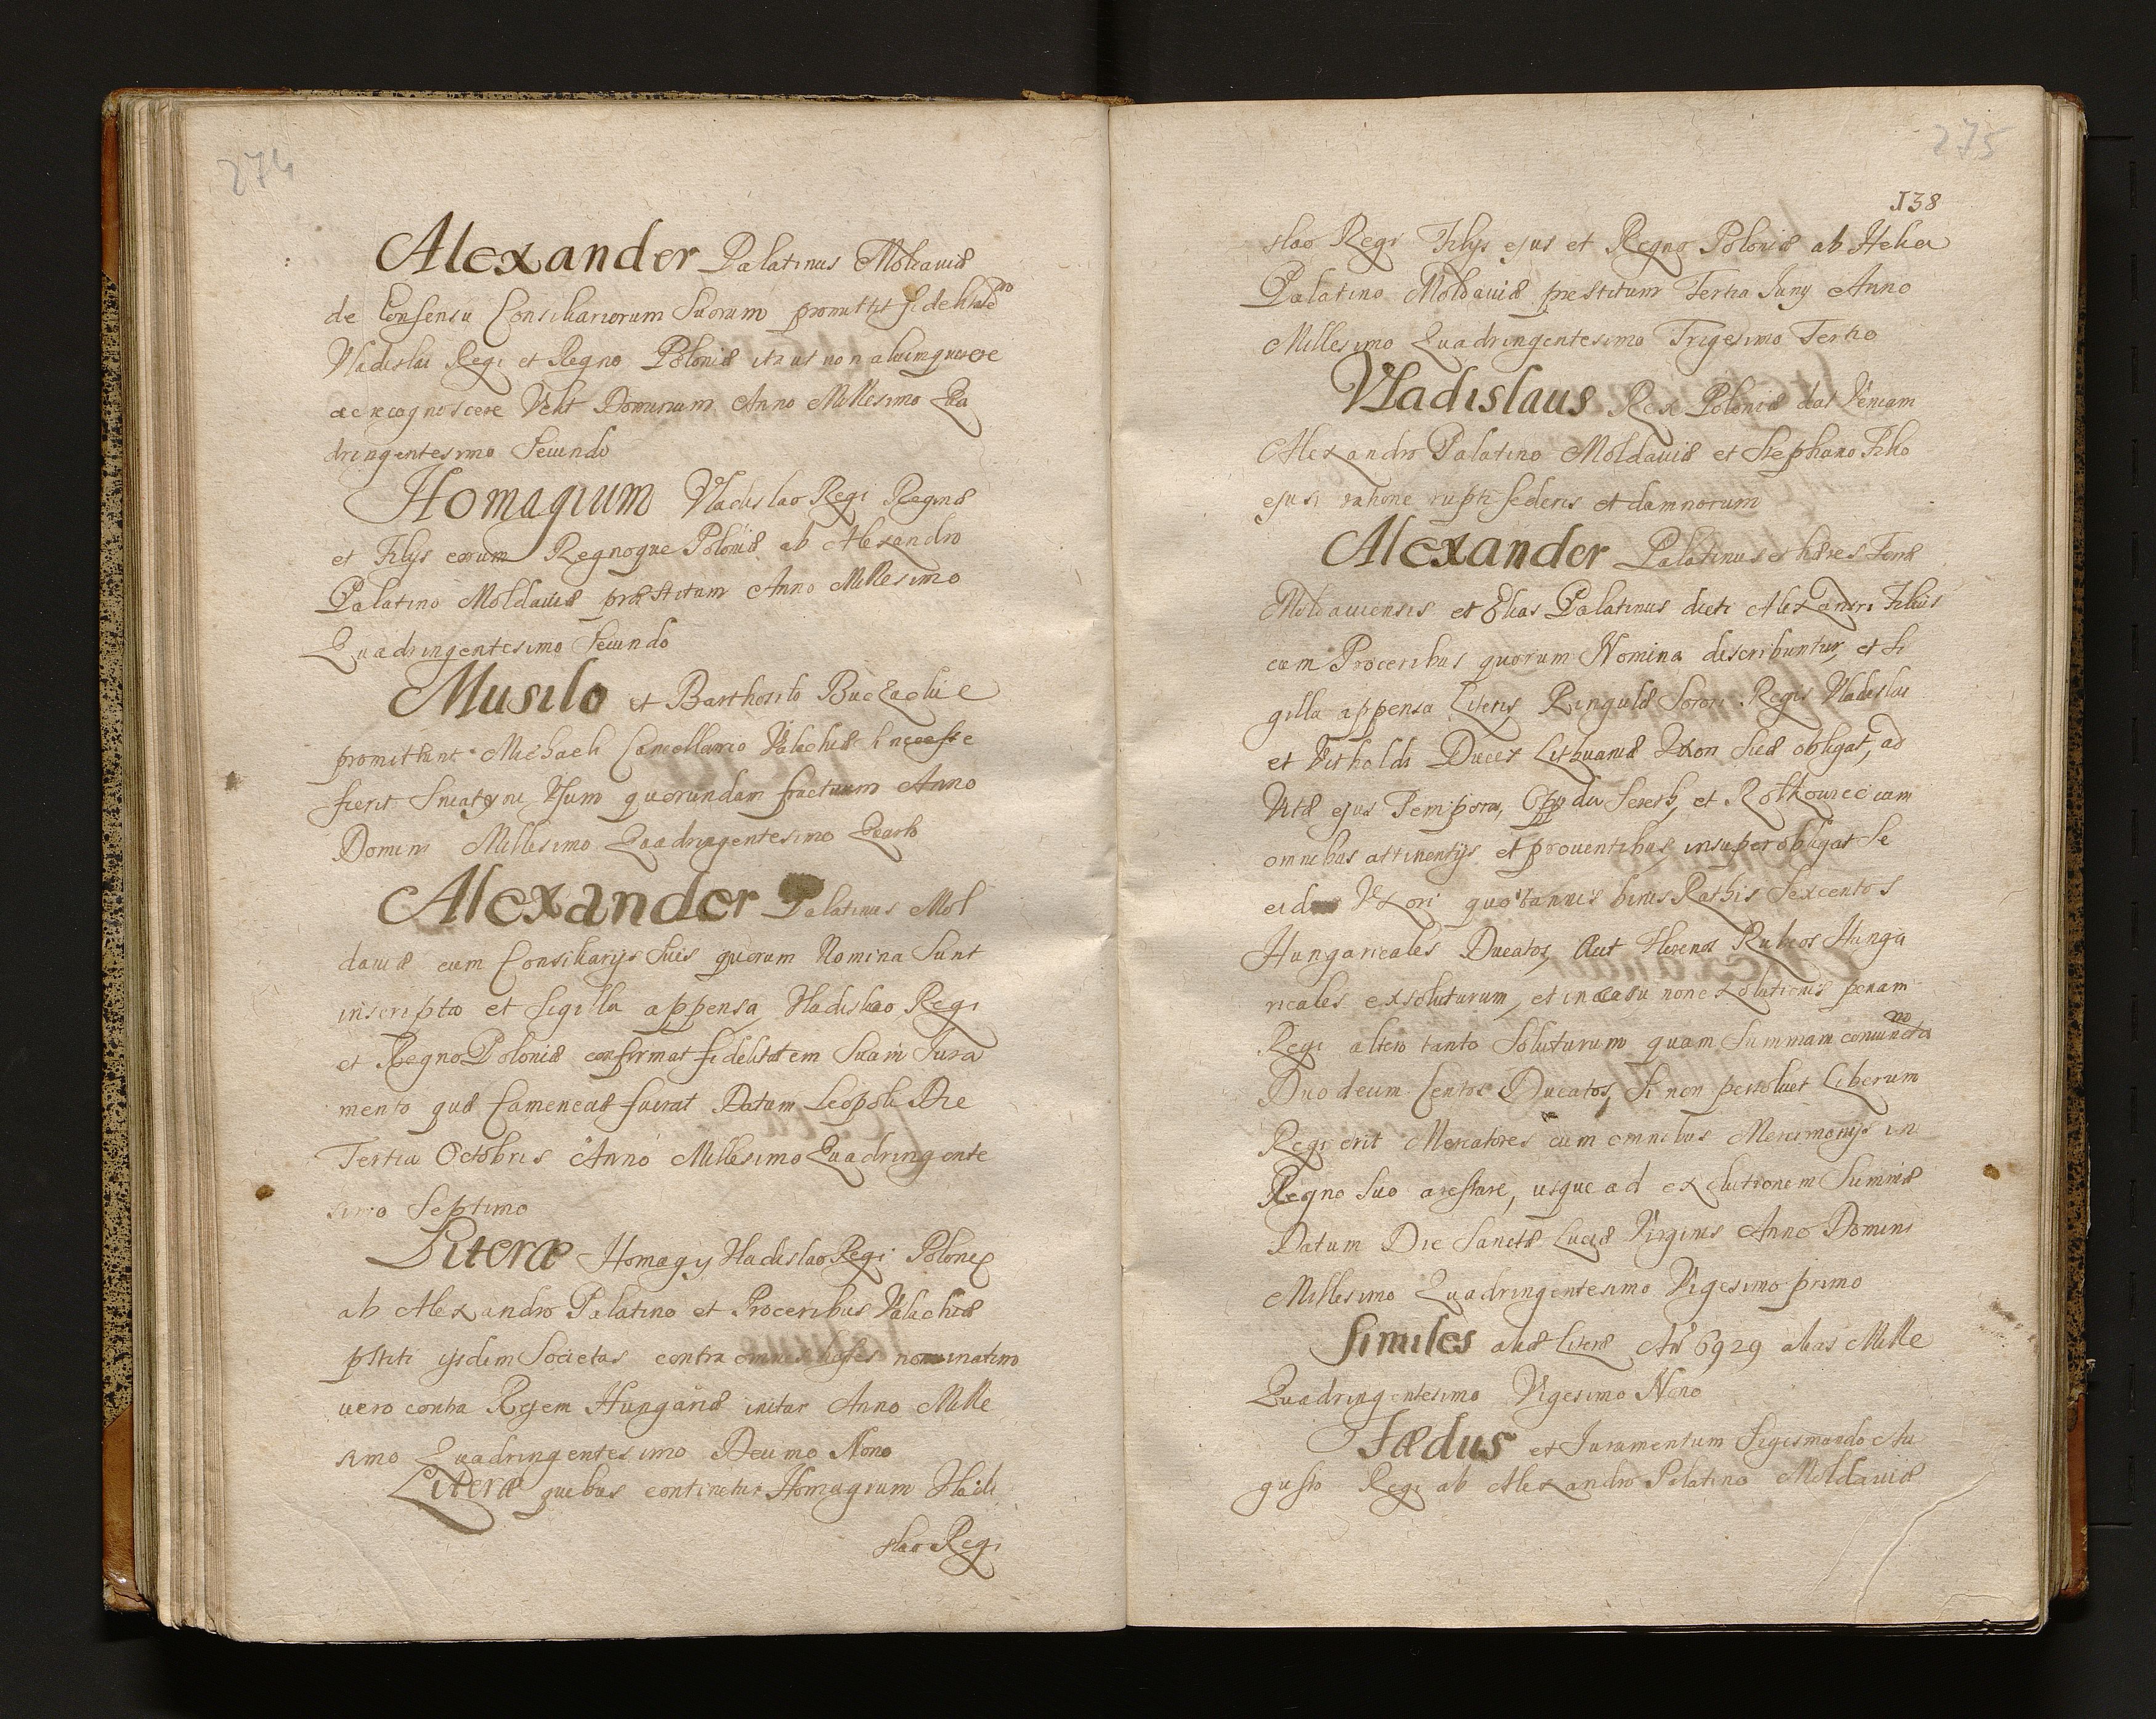 274
Alexander Palatinus Moldauiæ
de Consensu Consiliariorum Suorum promittit fidelitatem
Vladislai Regi et Regno Poloniæ ita ut non alium quærere
ac recognoscere Velit Dominum Anno Millesimo Qua
dringentesimo Secundo
Homagium Vladislao Regi Reginæ
et Filijs eorum Regnoque Poloniæ ab Alexandro
Palatino Moldauiæ præstitum Anno Millesimo
Quadringentesimo Secundo
Musilo et Barthosilo Buczaclie
promittunt Michaeli Cancellario Valachiæ
fierit Sniatyni Usum quorundam fructuum Anno
Domini Millesimo Quadringentesimo Quarto
Alexander Palatinus Mol
dauiæ cum Consiliarijs Suis quorum Nomina Sunt
inscripta et Sigilla appensa Vladislao Regi
et Regno Poloniæ confirmat fidelitatem Suam Jura
mento quæ Cameneciæ fuerat Datum Leopoli Die
Tertia Octobris Anno Millesimo Quadringente
simo Septimo
Literæ Homagij Vladislao Regi Poloniæ
ab Alexandro Palatino et Proceribus Valachiæ
pstiti ijsdem Societas contra omnes hostes nominatim
uero contra Regem Hungariæ initur Anno Mille
simo Quadringentesimo Decimo Nono
Literæ quibus continetur Homagium Vladi
slao Regi
275
138
slao Regi Filijs ejus et Regno Poloniæ ab Helia
Palatino Moldauiæ prestitum Tertia Junij Anno
Millesimo Quadringentesimo Trigesimo Tertio
Vladislaus Rex Poloniæ dat Veniam
Alexandro Palatino Moldauiæ et Stephano Filio
ejusi ratione rupti federis et damnorum
Alexander Palatinus et hæres Terræ
Moldauiensis et Elias Palatinus dicti Alexandri Filius
cum Proceribus quorum Nomina describuntur, et Si
gilla appensa Literis, Ringalæ Sorori Regis Vladislai
et Vitholdi Ducis Lithuaniæ Uxori Suæ obligat, ad
Vitæ ejus Tempora, Oppida Sereth, et Rolkowiec cum
omnibus attinentijs et prouentibus, insuper obligat Se
eidem Uxori quotannis binis Rathis Sexcentos
Hungaricales Ducatos, Aut Florenos Rubeos Hunga
ricales exsoluturum, et in casu non exolutionis penam
Regi altero tanto Soluturum quam Summam coniuncta
Duodecim Centos Ducatos, Si non persoluet Liberum
Regi erit Mercatores cum omnibus Mercimonijs in
Regno Suo arestare, usque ad exolutionem Summæ
Datum Die Sanctæ Luciæ Virginis Anno Domini
Millesimo Quadringentesimo Vigesimo primo
Similes aliæ Literæ Ao 6929 alias Mille
Quadringentesimo Vigesimo Nono
Fædus et Juramentum Sigismundo Au
gusto Regi ab Alexandro Palatino Moldauiæ